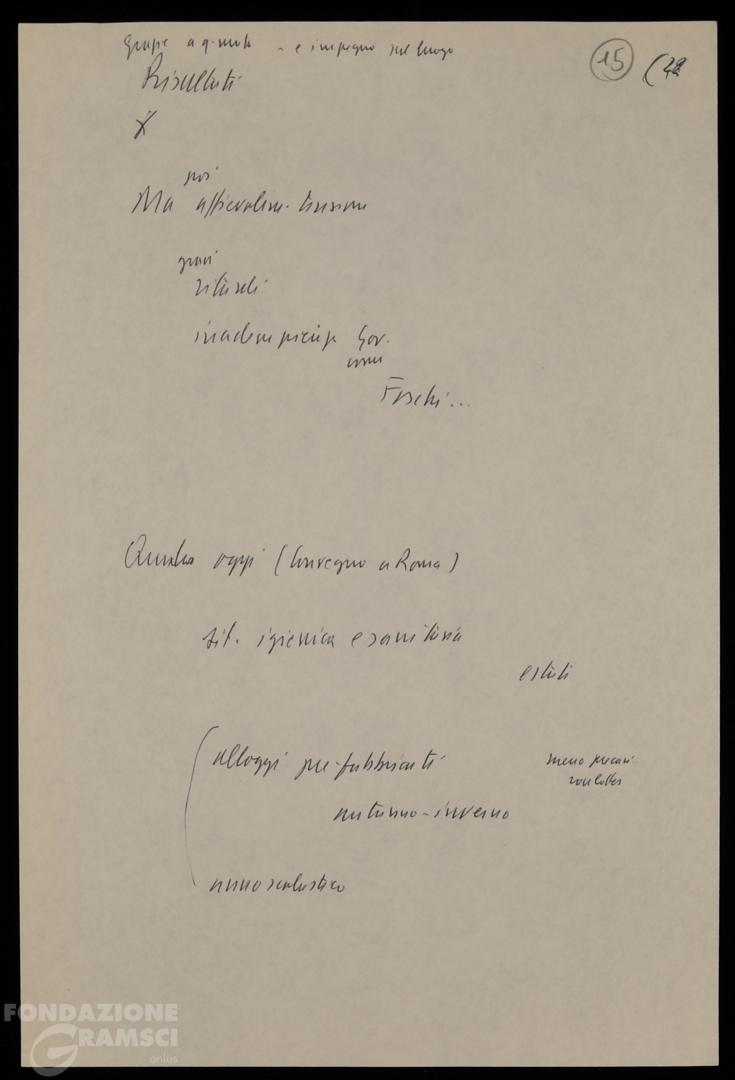 Grazie a q. nota - e impegno sul luogo
15 (42
Risultati
X
poi
Ma affievolim. tensione
gravi
ritardi
inadempienze Gov.
comm
Foschi...
Quadro oggi (Convegno a Roma)
sit. igienica e sanitaria
estate
alloggi pre-fabbricati
meno precari
roulottes
autunno-inverno
anno scolastico
FONDAZIONE
GRAMSCI
onlus